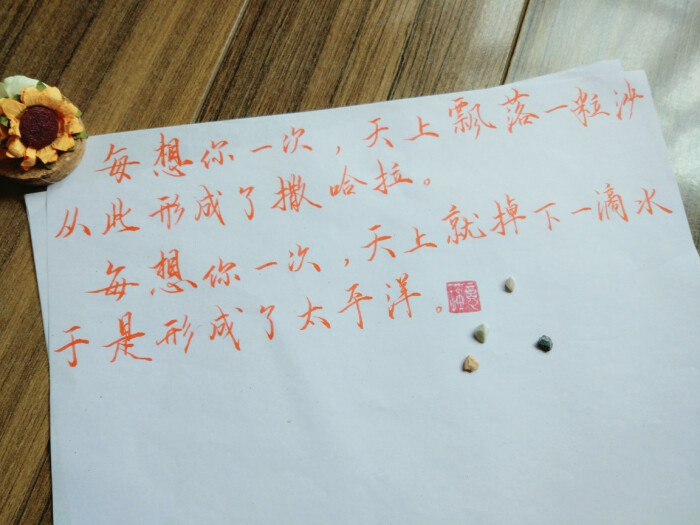 每想你一次，天上飘落一粒沙
从此形成了撒哈拉。
每想你一次，天上就掉下一滴水
于是形成了太平洋。